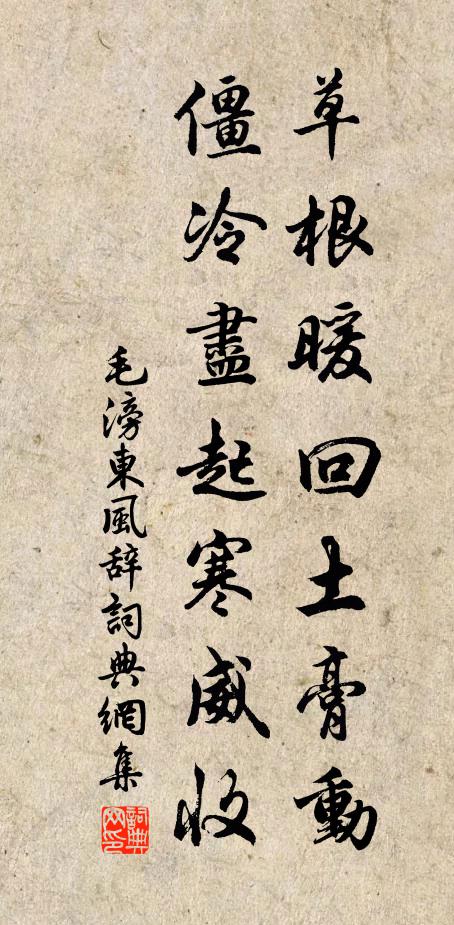 草根暖回土膏動
僵冷盡起寒威收
毛滂東風辭詞典網集
詞典
网印